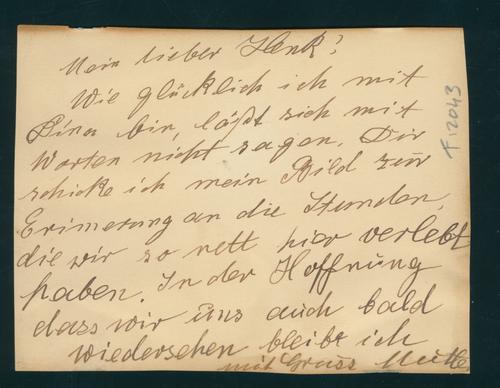 Mein lieber Henk!
Wie glücklich ich mit
Lina bin, läßt sich mit
Worten nicht sagen. Dir
schicke ich mein Bild zur
Erinnerung an die Stunden,
die wir so nett hier verlebt
haben. In der Hoffnung
dass wir uns auch bald
wiedersehen bleibt ich
mit Gruss
F12043